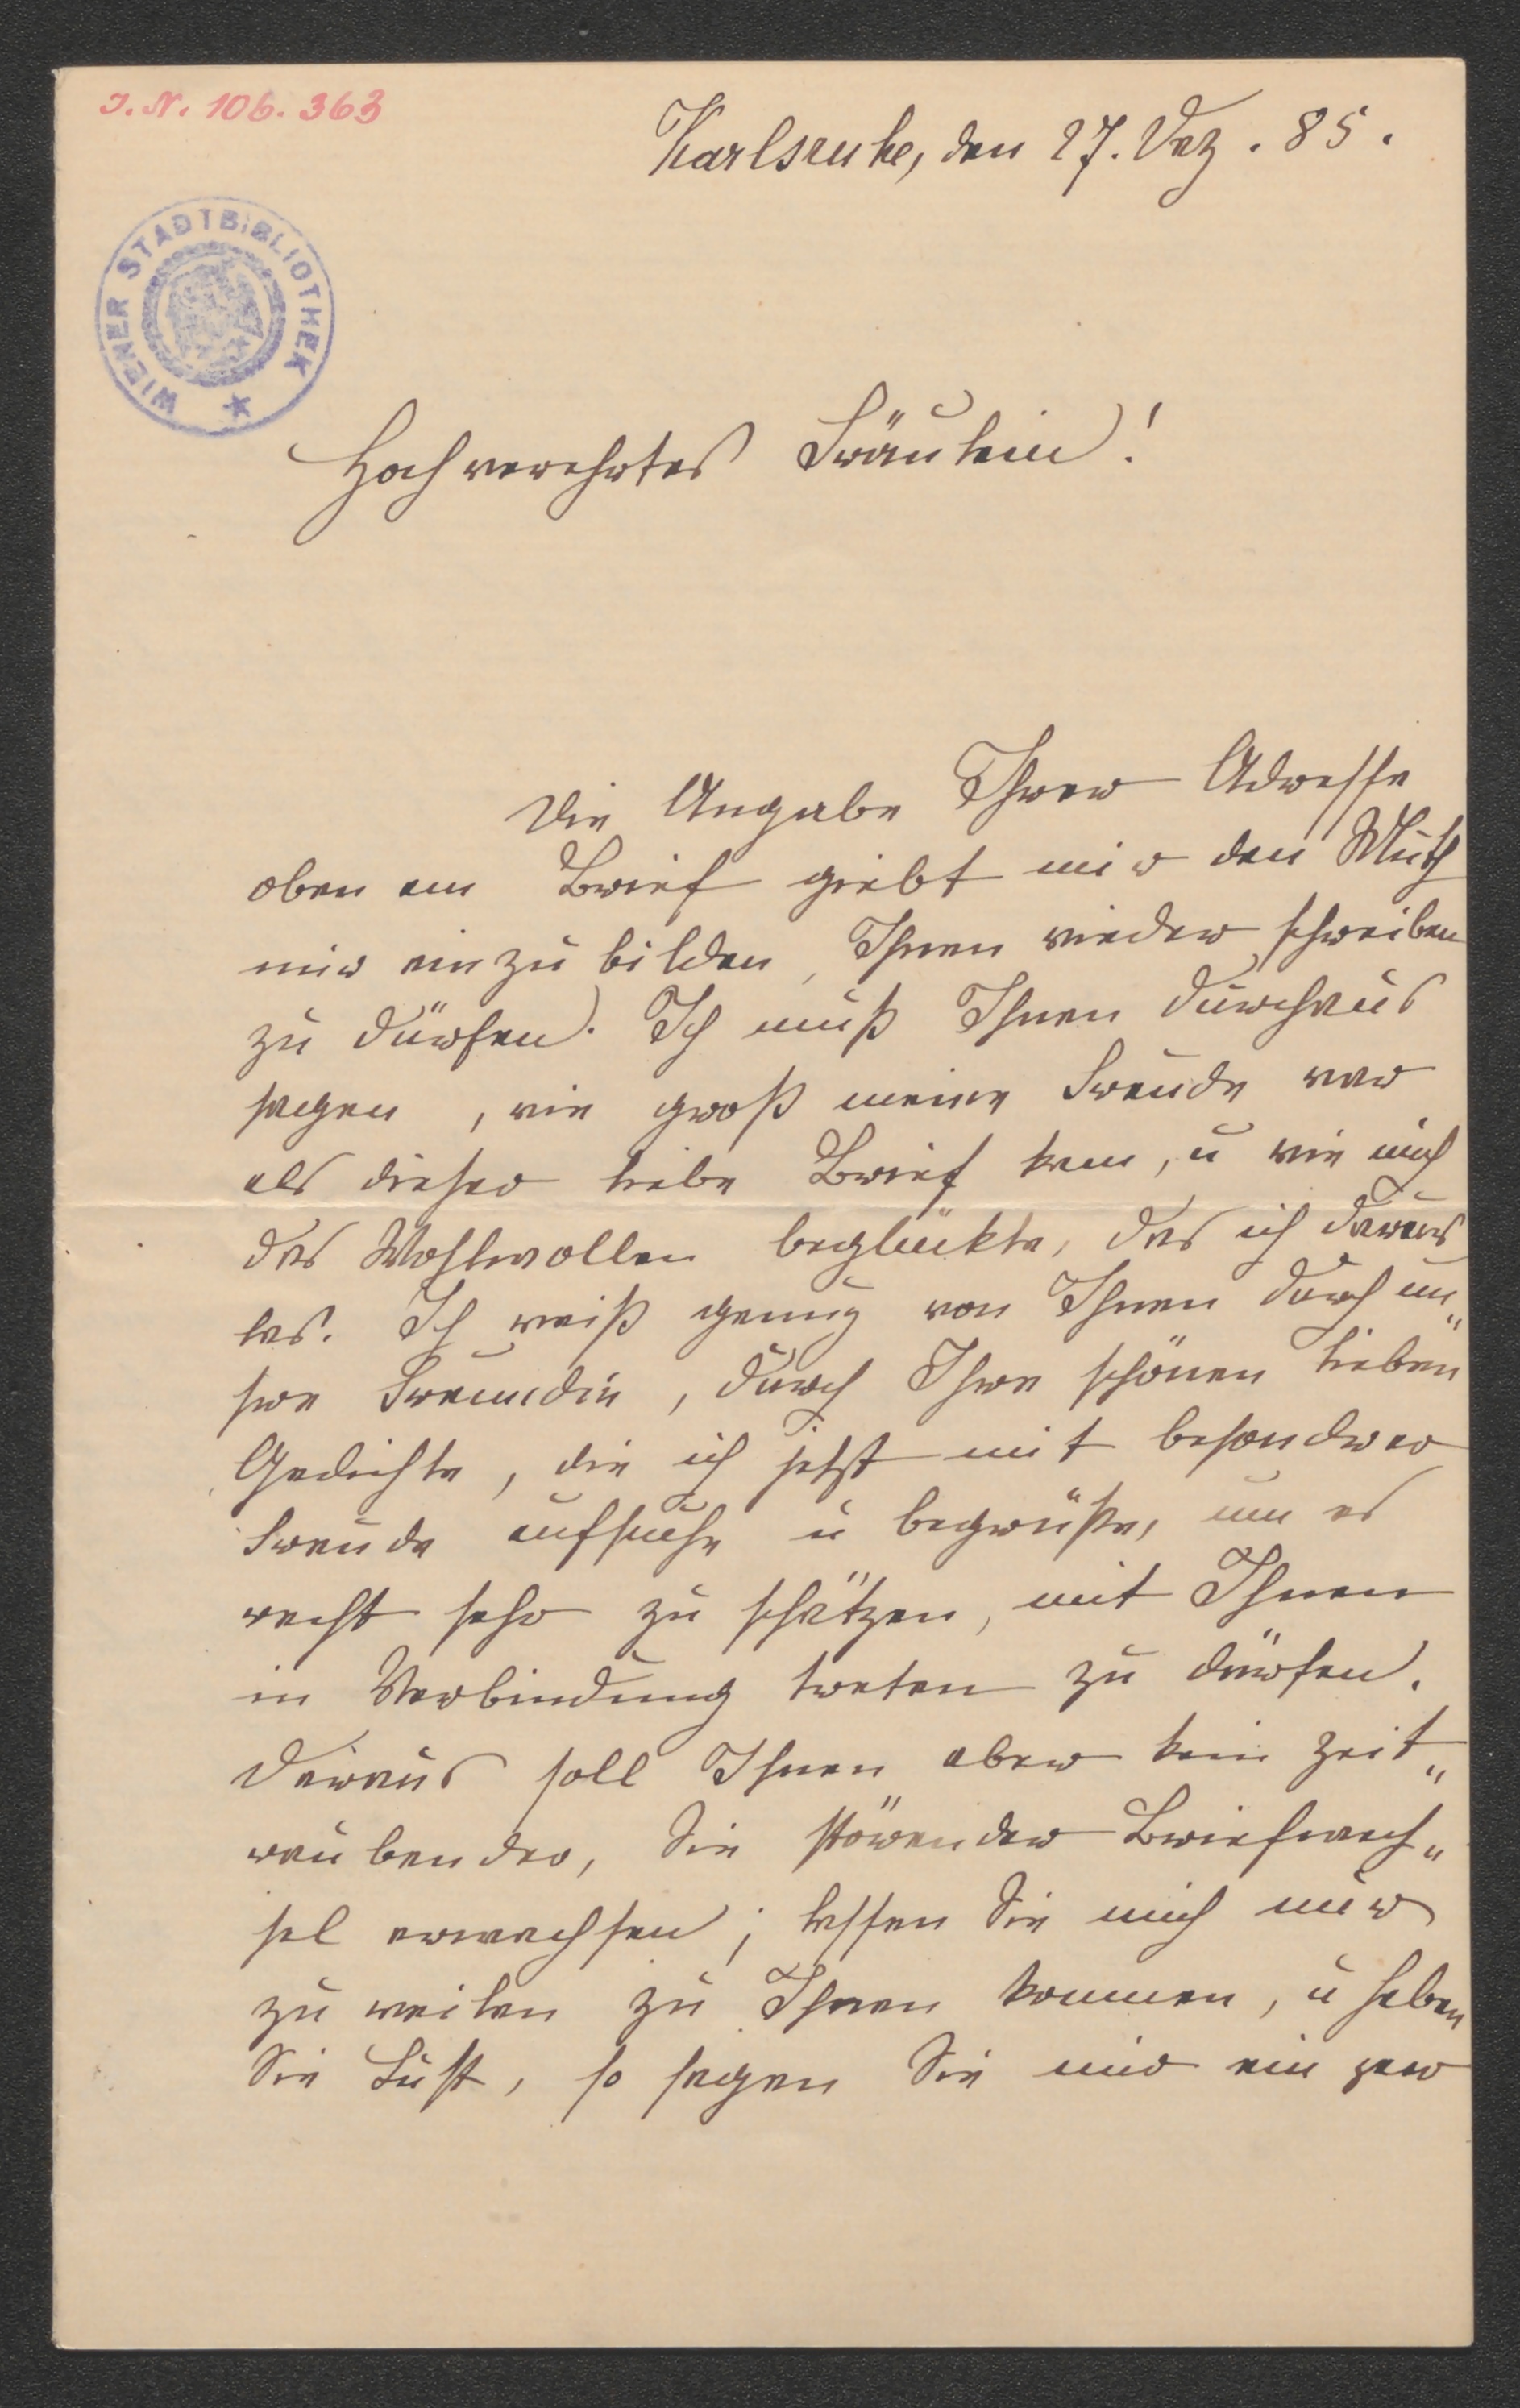 J. N. 106. 363
Karlsruhe, den 27. Dez. 85.
WIENER STADTBIBLIOTHEK
Hochverehrtes Fräulein!
Die Angabe Ihrer Adresse
oben am Brief giebt mir den Muth
mir einzubilden, Ihnen wieder schreiben
zu dürfen. Ich muß Ihnen durchaus
sagen, wie groß meine Freude war
als dieser liebe Brief kam, u wie mich
das Wohlwollen beglückte, das ich daraus
las. Ich weiß genug von Ihnen durch un„
sre Freundin, durch Ihre schönen lieben
Gedichte, die ich jetzt mit besondrer
Freude aufsuche u begrüße, um es
recht sehr zu schätzen, mit Ihnen
in Verbindung treten zu dürfen.
Daraus soll Ihnen aber kein zeit„
raubender, Sie störender Briefwech„
sel erwachsen; lassen Sie mich nur
zuweilen zu Ihnen kommen, u haben
Sie Lust, so sagen Sie mir ein paar